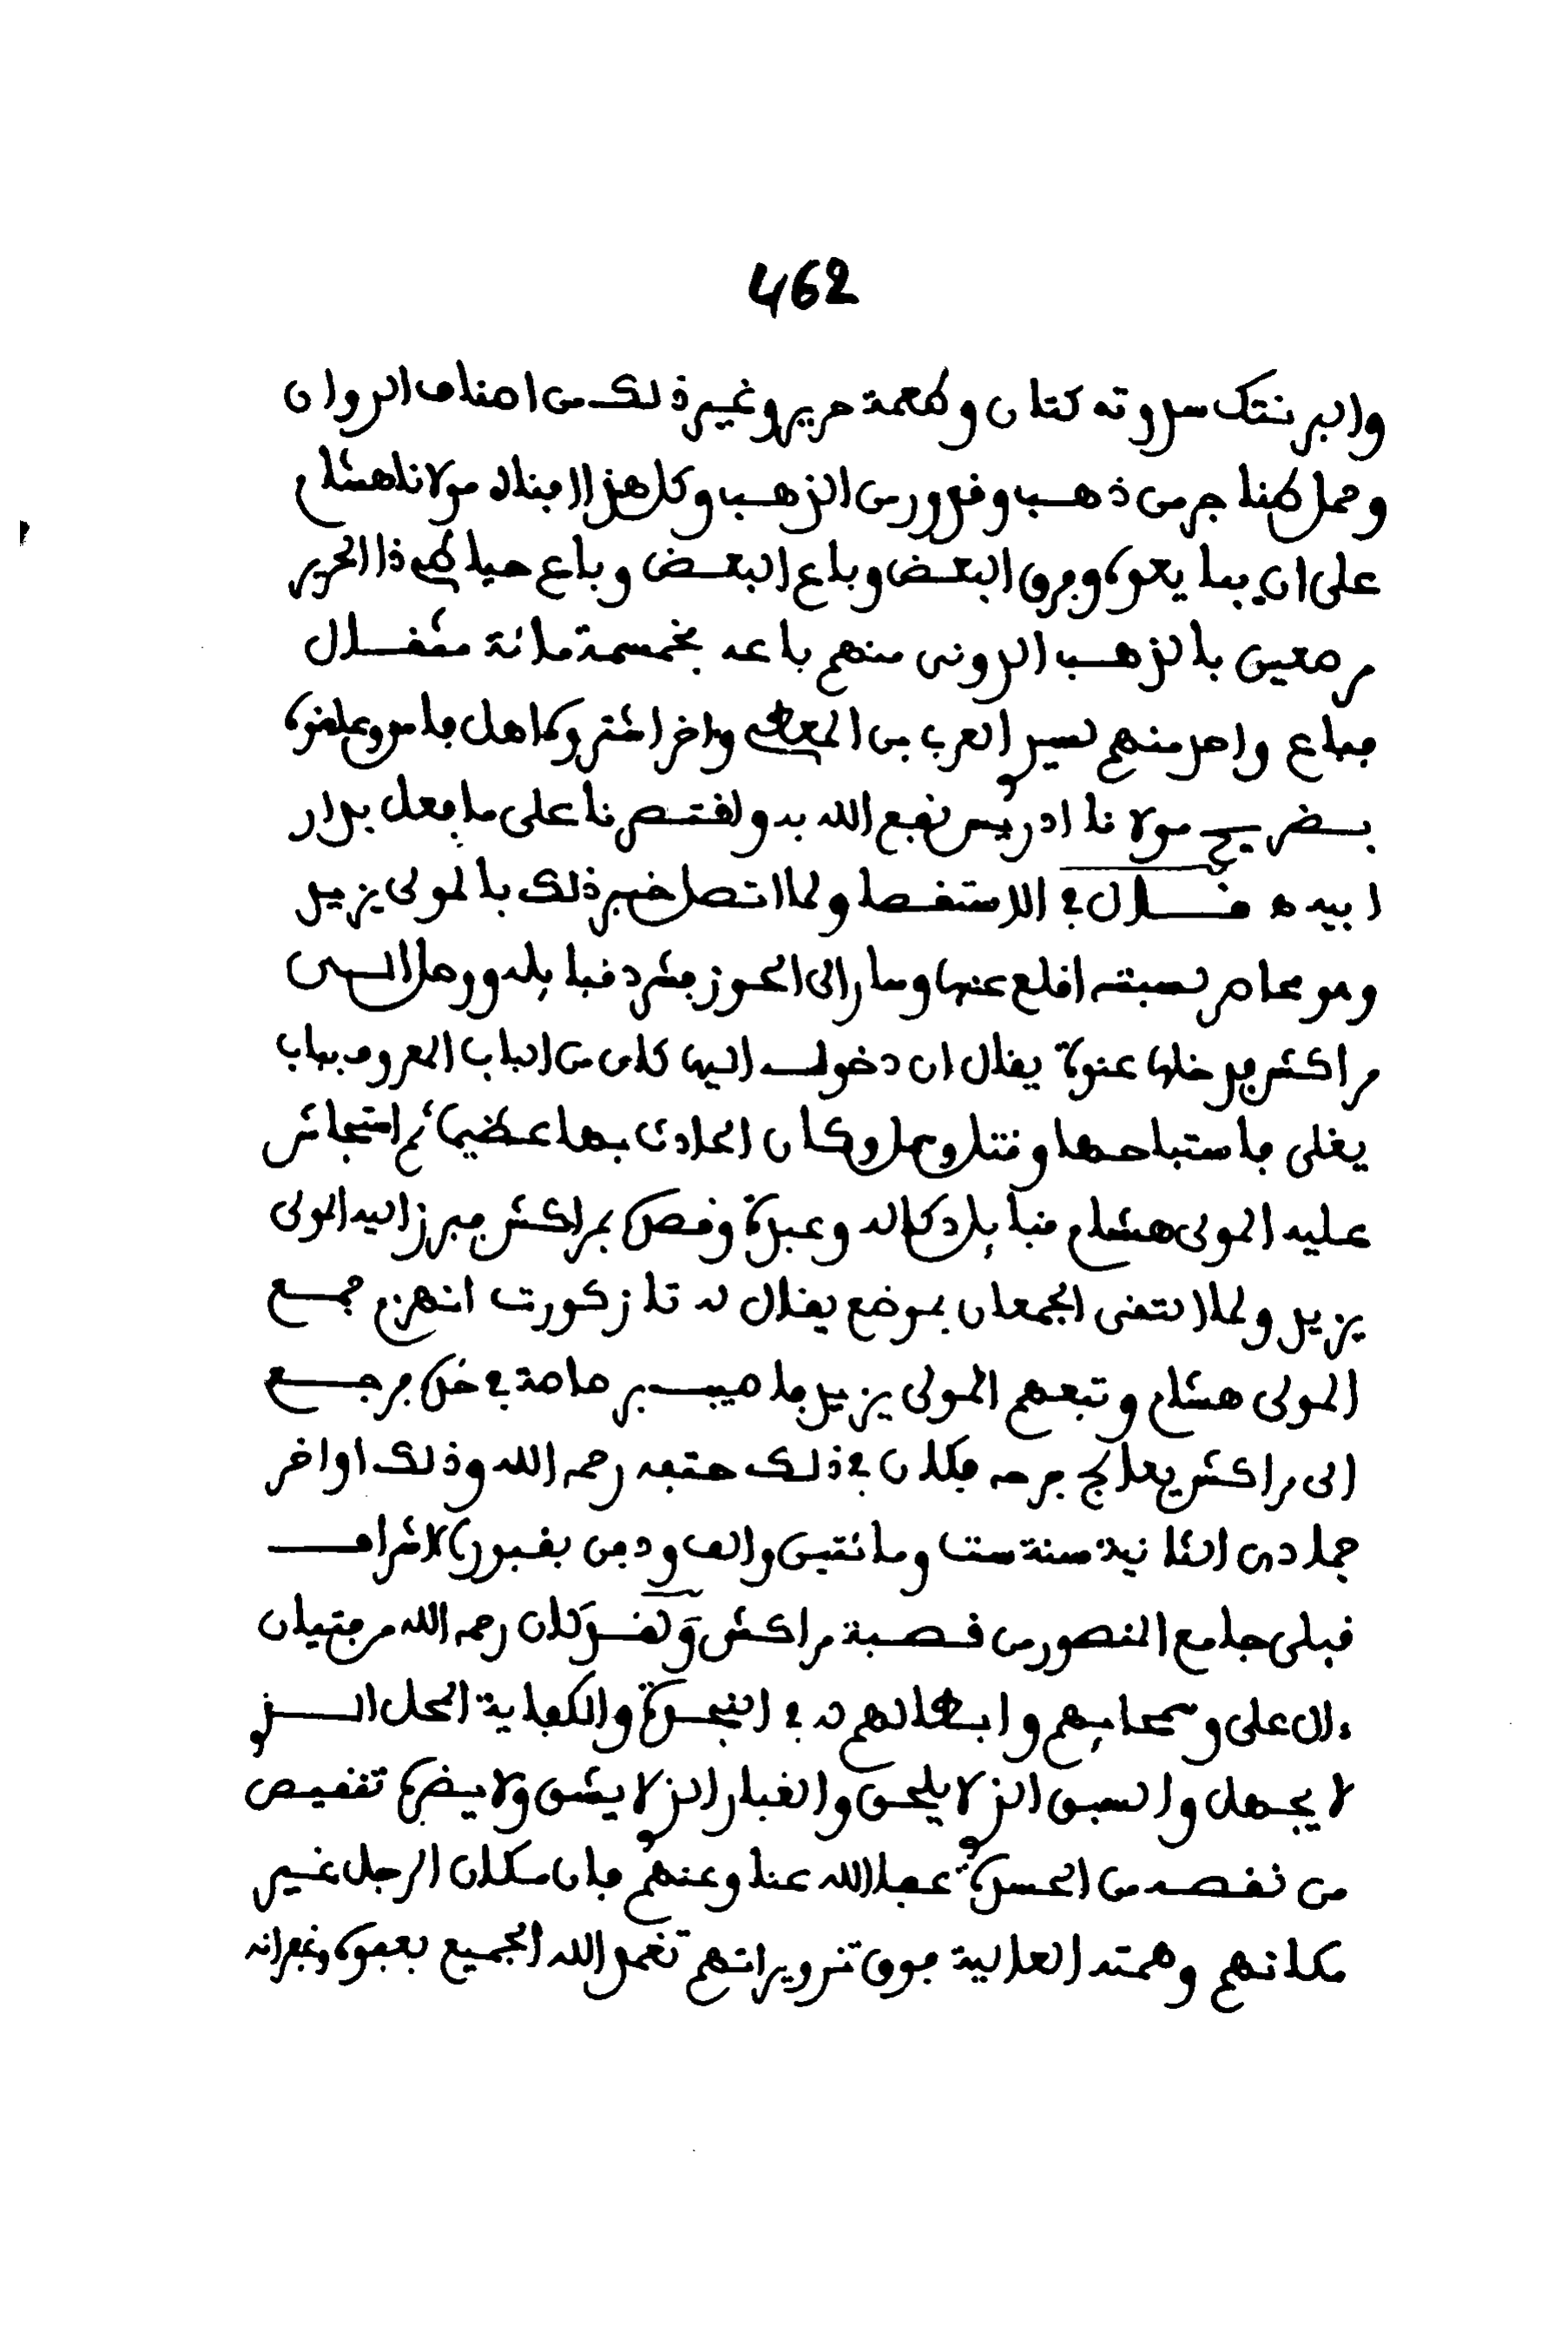 462
والبرنتك سدوته كتان وطعمة حرير وغير ذلك من اصناف الروان
وحمل طناجر من ذهب وقدور من الذهب وكل هذا افناه مولانا هشام
على ان يبايعوه وفرق البعض وباع البعض وباع حياطي ذا الحرير
مرصعين بالذهب الدوني منهم باعه بخمسمة مائة مثقال
فباع واحد منهم لسير العرب بن المعطي وءاخر اشتروه اهل فاس وعلقوه
بضريح مولانا ادريس نفع الله به ولقتصرنا على ما فعل بدار
ابيه ه قال في الاستقصا ولما اتصل خبر ذلك بالمولى يزيد
وهو محاصر لسبتة اقلع عنها وسار الى الحوز فشرد قبايله ووصل الى
مراكش فدخلها عنوة يقال ان دخوله اليها كان من الباب المعروف بباب
يغلى فاستباحها وقتل وسمل وكان الحادث بها عظيما ثم استجاش
عليه المولى هشام قبايل دكالة وعبدة وقصده بمراكش فبرز اليه المولى
يزيد ولما التقى الجمعان بموضع يقال له تازكورت انهزم جمع
المولى هشام وتبعهم المولى يزيد فاصيب برصاصة في خده فرجع
الى مراكش يعالج جرحه فكان في ذلك حتفه رحمه الله وذلك اواخر
جمادى الثانية سنة ست ومائتين والف ودفن بقبور الاشراف
قبلى جامع المنصور من قصبة مراكش وَلَقَد كَان رحمه الله من فتيان
ءال على وسمحايهم وابطالهم له في النجدة والكفاية المحل الذي
لا يجهل والسبق الذي لا يلحق والغبار الذي لا يشق ولا يضره تنقيص
من نقصه من الحسدة عفا الله عنا وعنهم فان مكان الرجل غير
مكانهم وهمته العالية فوق تزويراتهم تغمد الله الجميع بعفوه وغفرانه